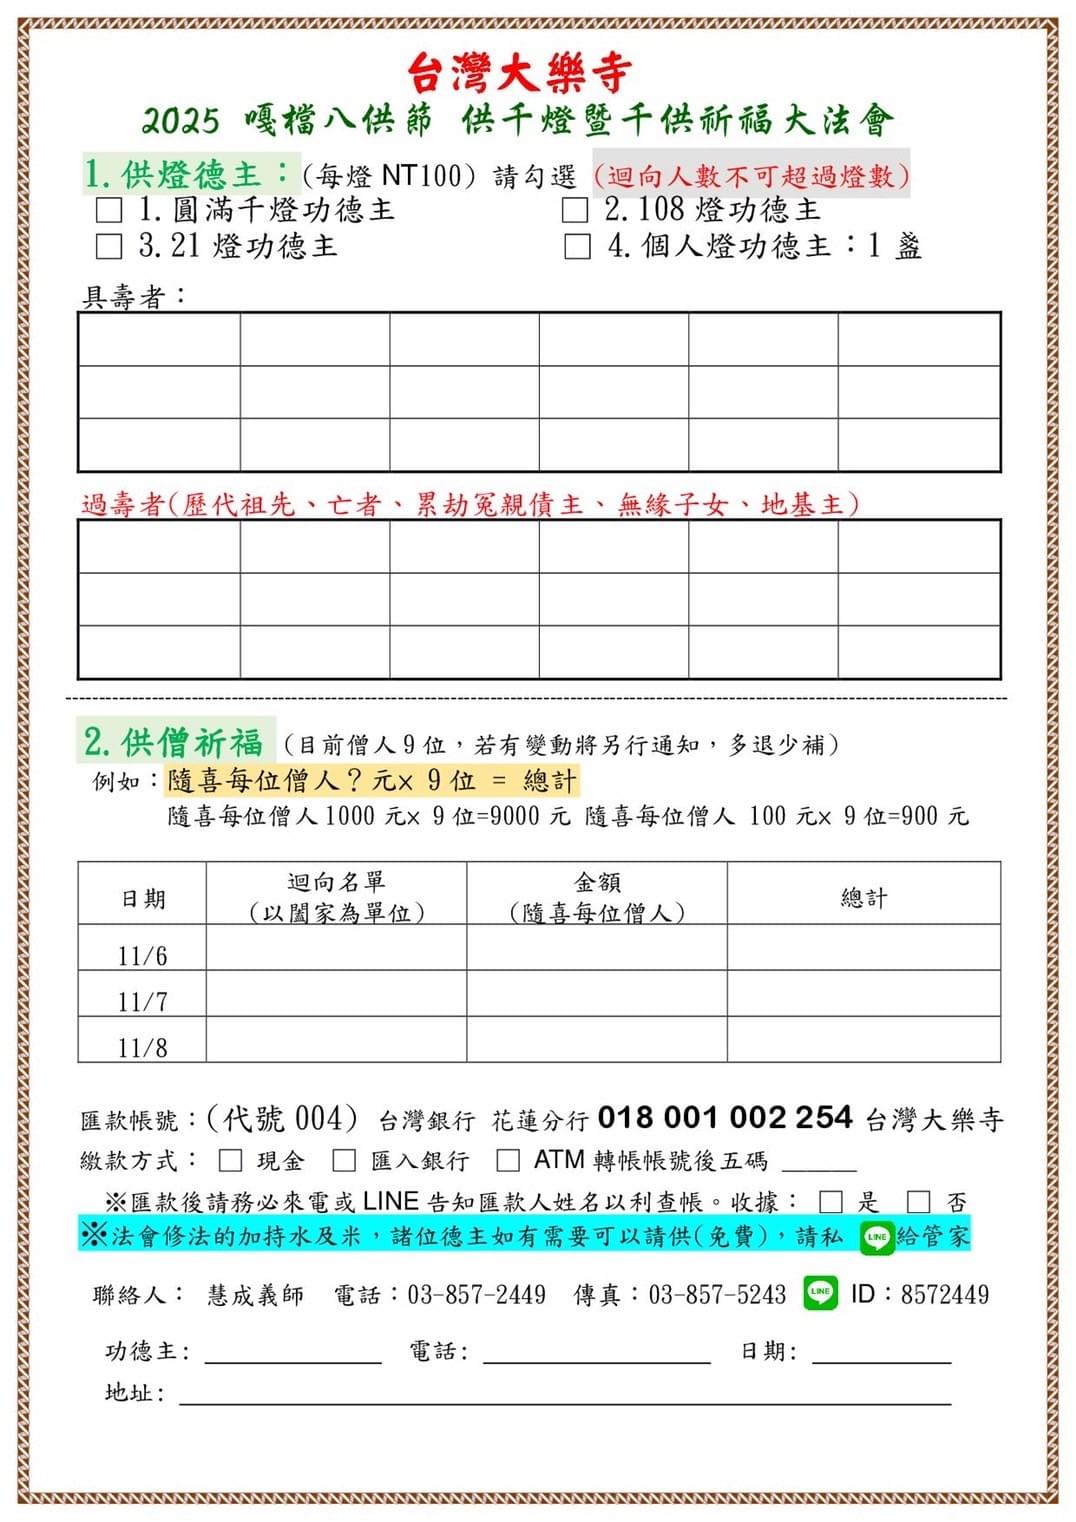 台灣大樂寺
2025 嘎檔八供節 供千燈暨千供祈福大法會
1. 供燈德主：(每燈 NT100) 請勾選 (迴向人數不可超過燈數)
□ 1. 圓滿千燈功德主 □ 2. 108 燈功德主
□ 3. 21 燈功德主 □ 4. 個人燈功德主：1 盞
具壽者：
過壽者(歷代祖先、亡者、累劫冤親債主、無緣子女、地基主)
2. 供僧祈福 (目前僧人 9 位，若有變動將另行通知，多退少補)
例如：隨喜每位僧人？元× 9 位 = 總計
隨喜每位僧人 1000 元× 9 位=9000 元 隨喜每位僧人 100 元× 9 位=900 元
日期 迴向名單 (以闔家為單位) 金額 (隨喜每位僧人) 總計
11/6
11/7
11/8
匯款帳號：(代號 004) 台灣銀行 花蓮分行 018 001 002 254 台灣大樂寺
繳款方式： □ 現金 □ 匯入銀行 □ ATM 轉帳帳號後五碼 ______
※匯款後請務必來電或 LINE 告知匯款人姓名以利查帳。收據： □ 是 □ 否
※法會修法的加持水及米，諸位德主如有需要可以請供(免費)，請私 LINE 給管家
聯絡人： 慧成義師 電話：03-857-2449 傳真：03-857-5243 LINE ID：8572449
功德主: ____________ 電話: ____________ 日期: ____________
地址: ____________